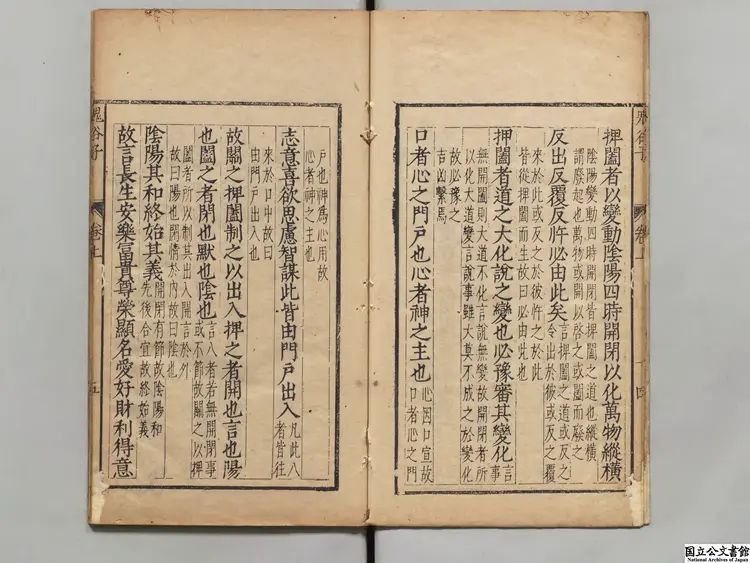 鬼谷子 卷上 四
捭闔者以變動陰陽四時開閉以化萬物縱橫
陰陽變動四時開閉皆捭闔之道也縱橫
謂廢起也萬物或開以啓之或闔而廢之
反出反覆反忤必由此矣
言捭闔之道或反之
令出於彼或反之覆
來於此或反之於彼忤之於此
皆從捭闔而生故曰必由此也
捭闔者道之大化說之變也必豫審其變化
言
事
無開闔則大道不化言說無變故開閉者所
以化大道變言說事雖大莫不成之於變化
故必豫之
吉凶繫焉
口者心之門戶也心者神之主也
心因口宣故
口者心之門
戶也神爲心用故
心者神之主也
志意喜欲思慮智謀此皆由門戶出入
凡此八
者皆往
來於口中故曰
由門戶出入也
故關之捭闔制之以出入捭之者開也言也陽
也闔之者閉也默也陰也
言入者若無開閉事
或不節故關之以捭
闔者所以制其出入開言於外
故曰陽也閉情於內故曰陰也
陰陽其和終始其義
開閉有節故陰陽和
先後合宜故終始義
故言長生安樂富貴尊榮顯名愛好財利得意
鬼谷子 卷上 五
国立公文書館
National Archives of Japan